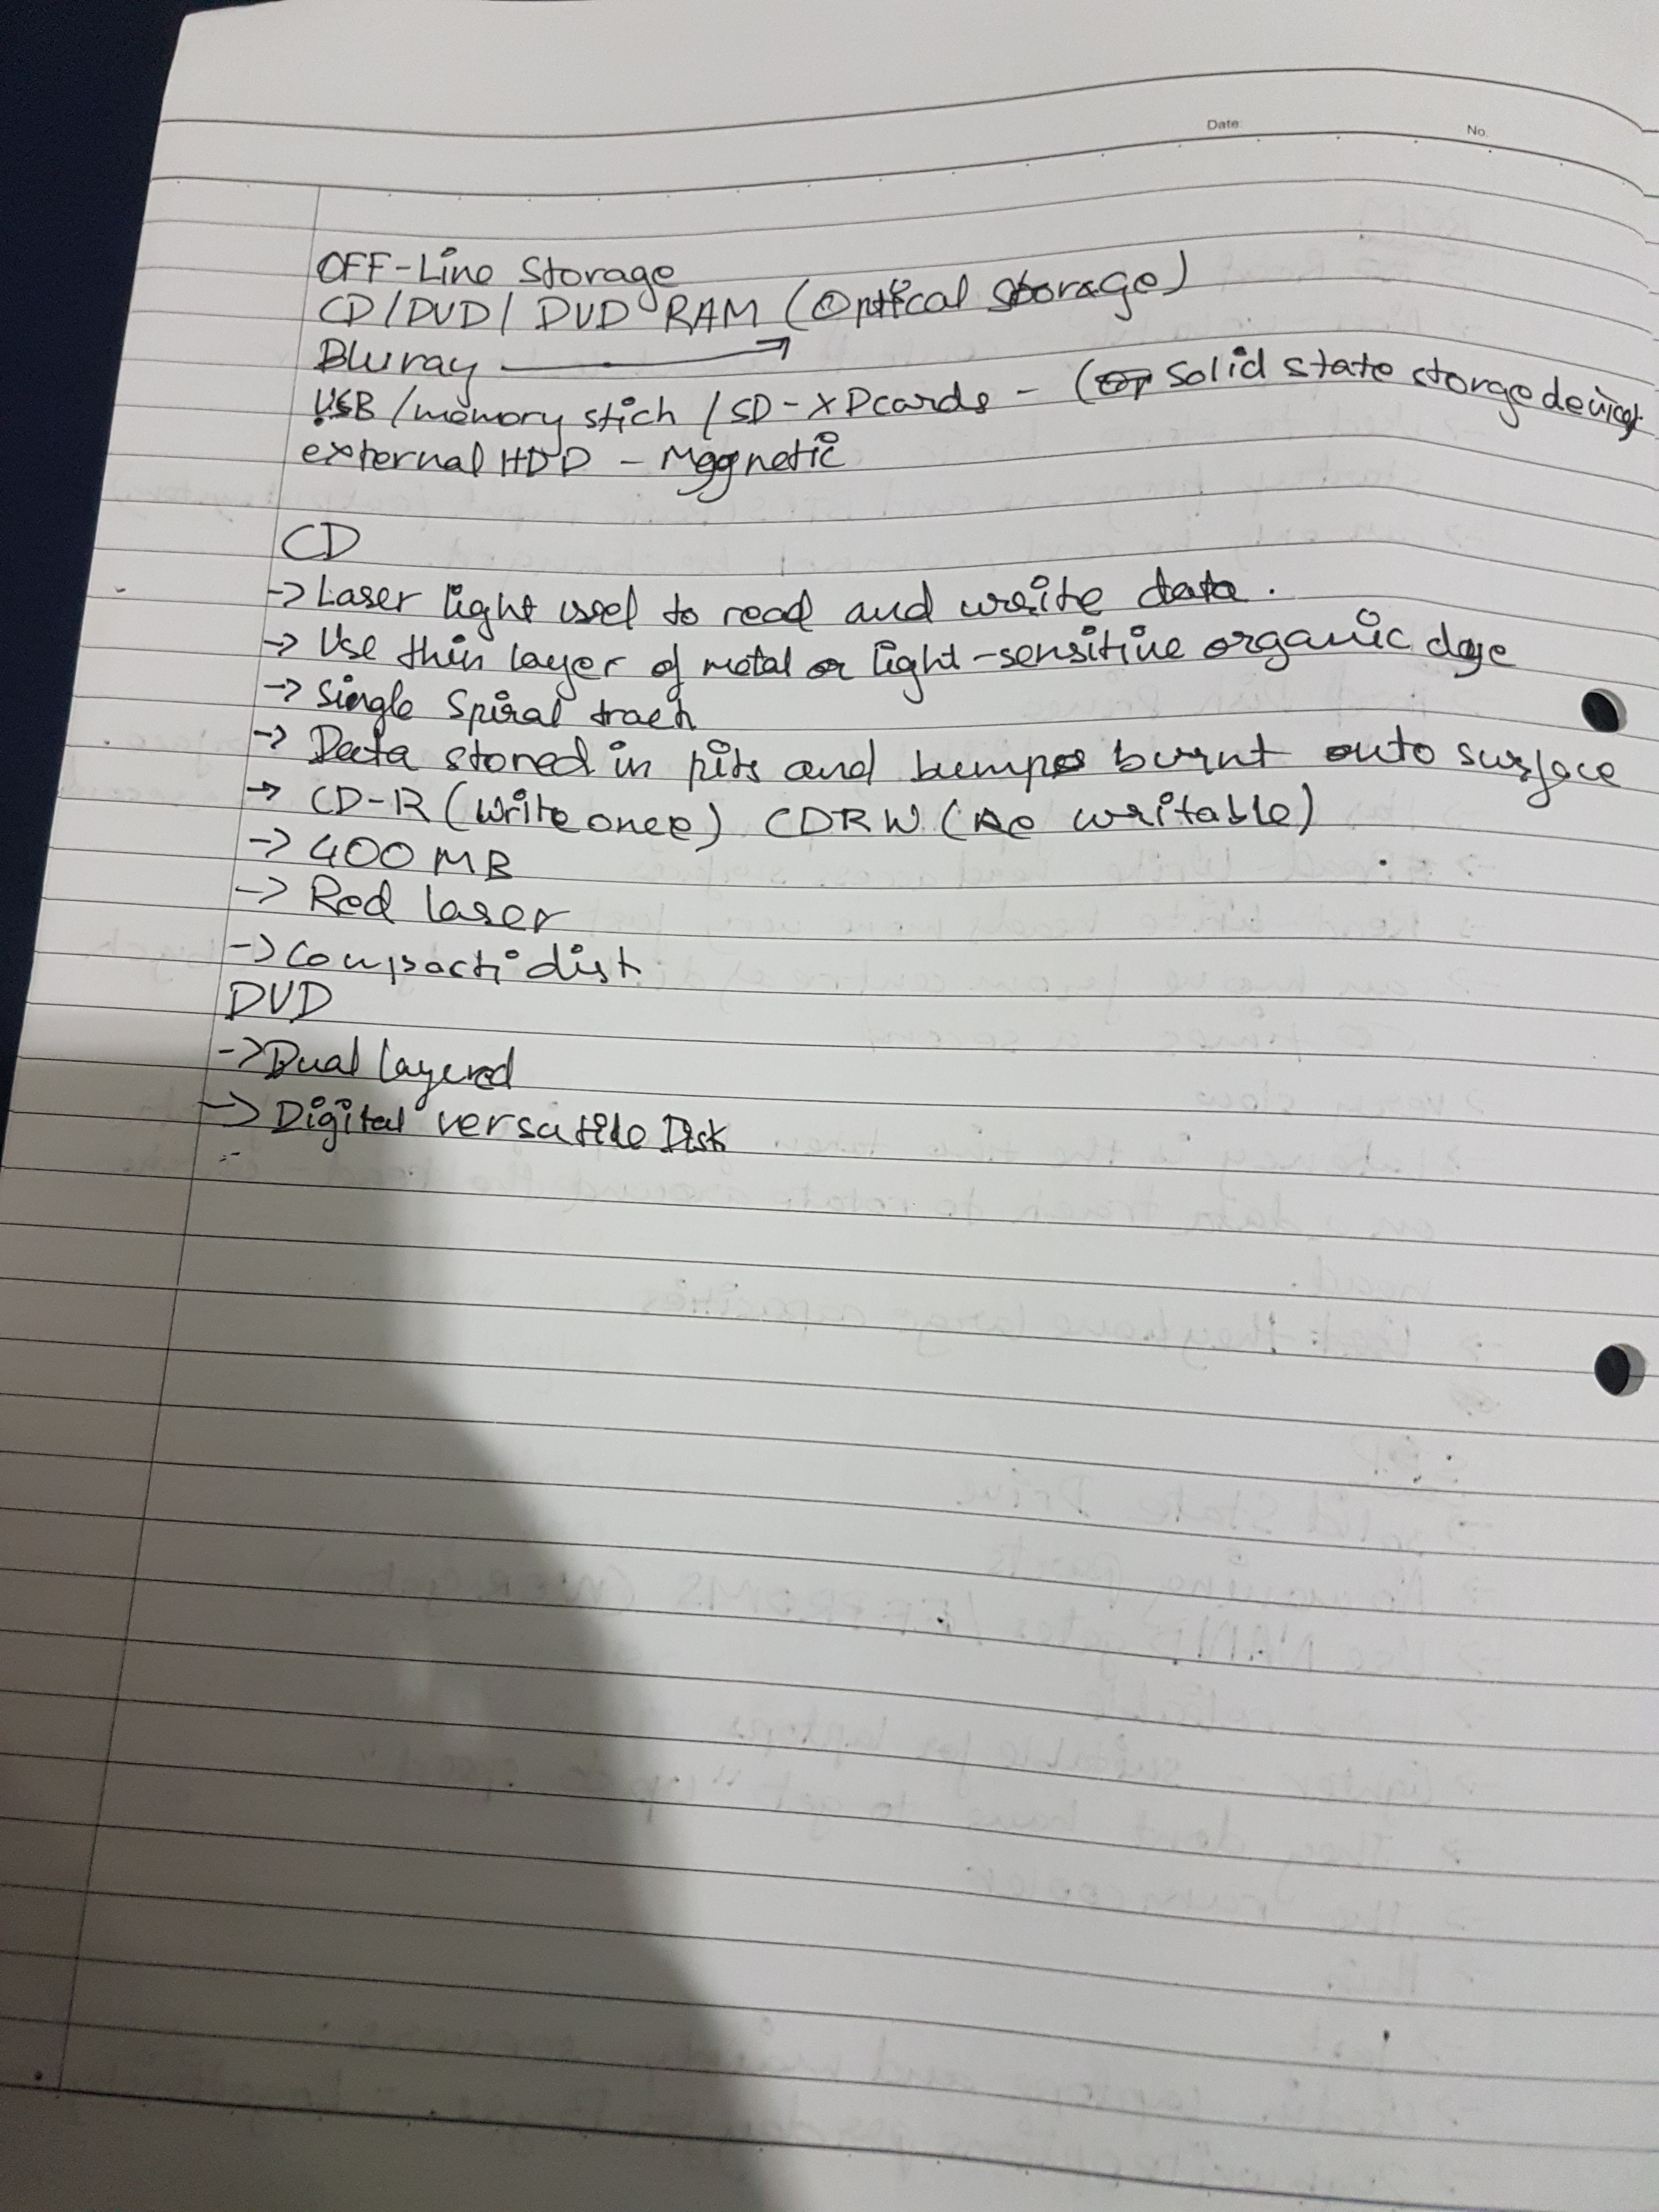 Date No.
OFF-Line Storage
CD/DVD/ DVD RAM (Optical Storage)
Bluray →
USB /memory stich / SD-XDcards - (Solid state storge devices
external HDD - Magnetic
CD
-> Laser light used to read and write data.
-> Use thin layer of metal or light-sensitive organic dye
-> Single Spiral track
-> Data stored in pits and bumps burnt onto surface
-> CD-R (write once) CDRW (Re writable)
-> 400 MB
-> Red laser
-> Compact disk
DVD
-> Dual layered
-> Digital versatile Disk